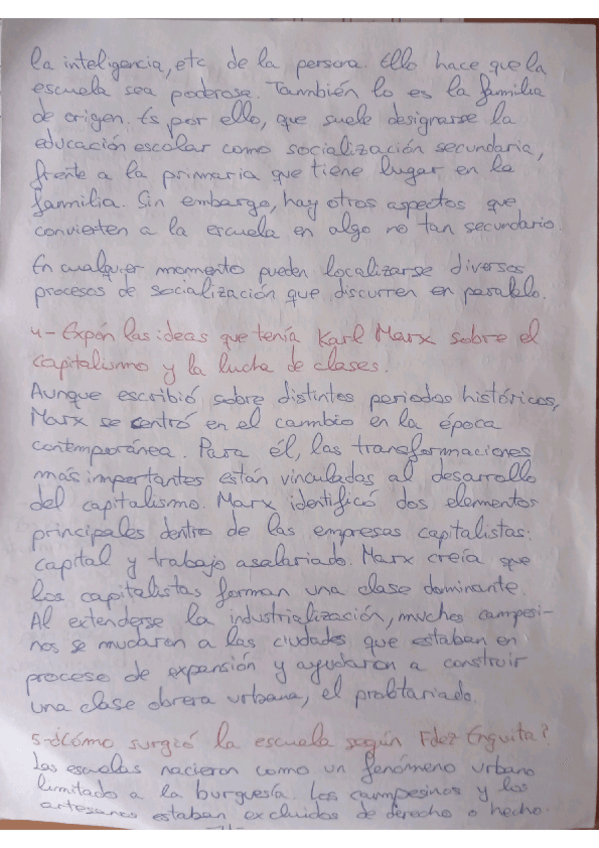 la inteligencia, etc de la persona. Ello hace que la
escuela sea poderosa. También lo es la familia
de origen. Es por ello, que suele designarse la
educación escolar como socialización secundaria,
frente a la primaria que tiene lugar en la
familia. Sin embargo, hay otros aspectos que
convierten a la escuela en algo no tan secundario.
En cualquier momento pueden localizarse diversos
procesos de socialización que discurren en paralelo.
4- Expón las ideas que tenía Karl Marx sobre el
capitalismo y la lucha de clases.
Aunque escribió sobre distintos periodos históricos,
Marx se centró en el cambio en la época
contemporánea. Para él, las transformaciones
más importantes están vinculadas al desarrollo
del capitalismo. Marx identificó dos elementos
principales dentro de las empresas capitalistas:
capital y trabajo asalariado. Marx creía que
los capitalistas forman una clase dominante.
Al extenderse la industrialización, muchos campesi-
nos se mudaron a las ciudades que estaban en
proceso de expansión y ayudaron a construir
una clase obrera urbana, el proletariado.
5-¿Cómo surgió la escuela según Fdez Enguita?
Las escuelas nacieron como un fenómeno urbano
limitado a la burguesía. Los campesinos y los
artesanos estaban excluidos de derecho o hecho.